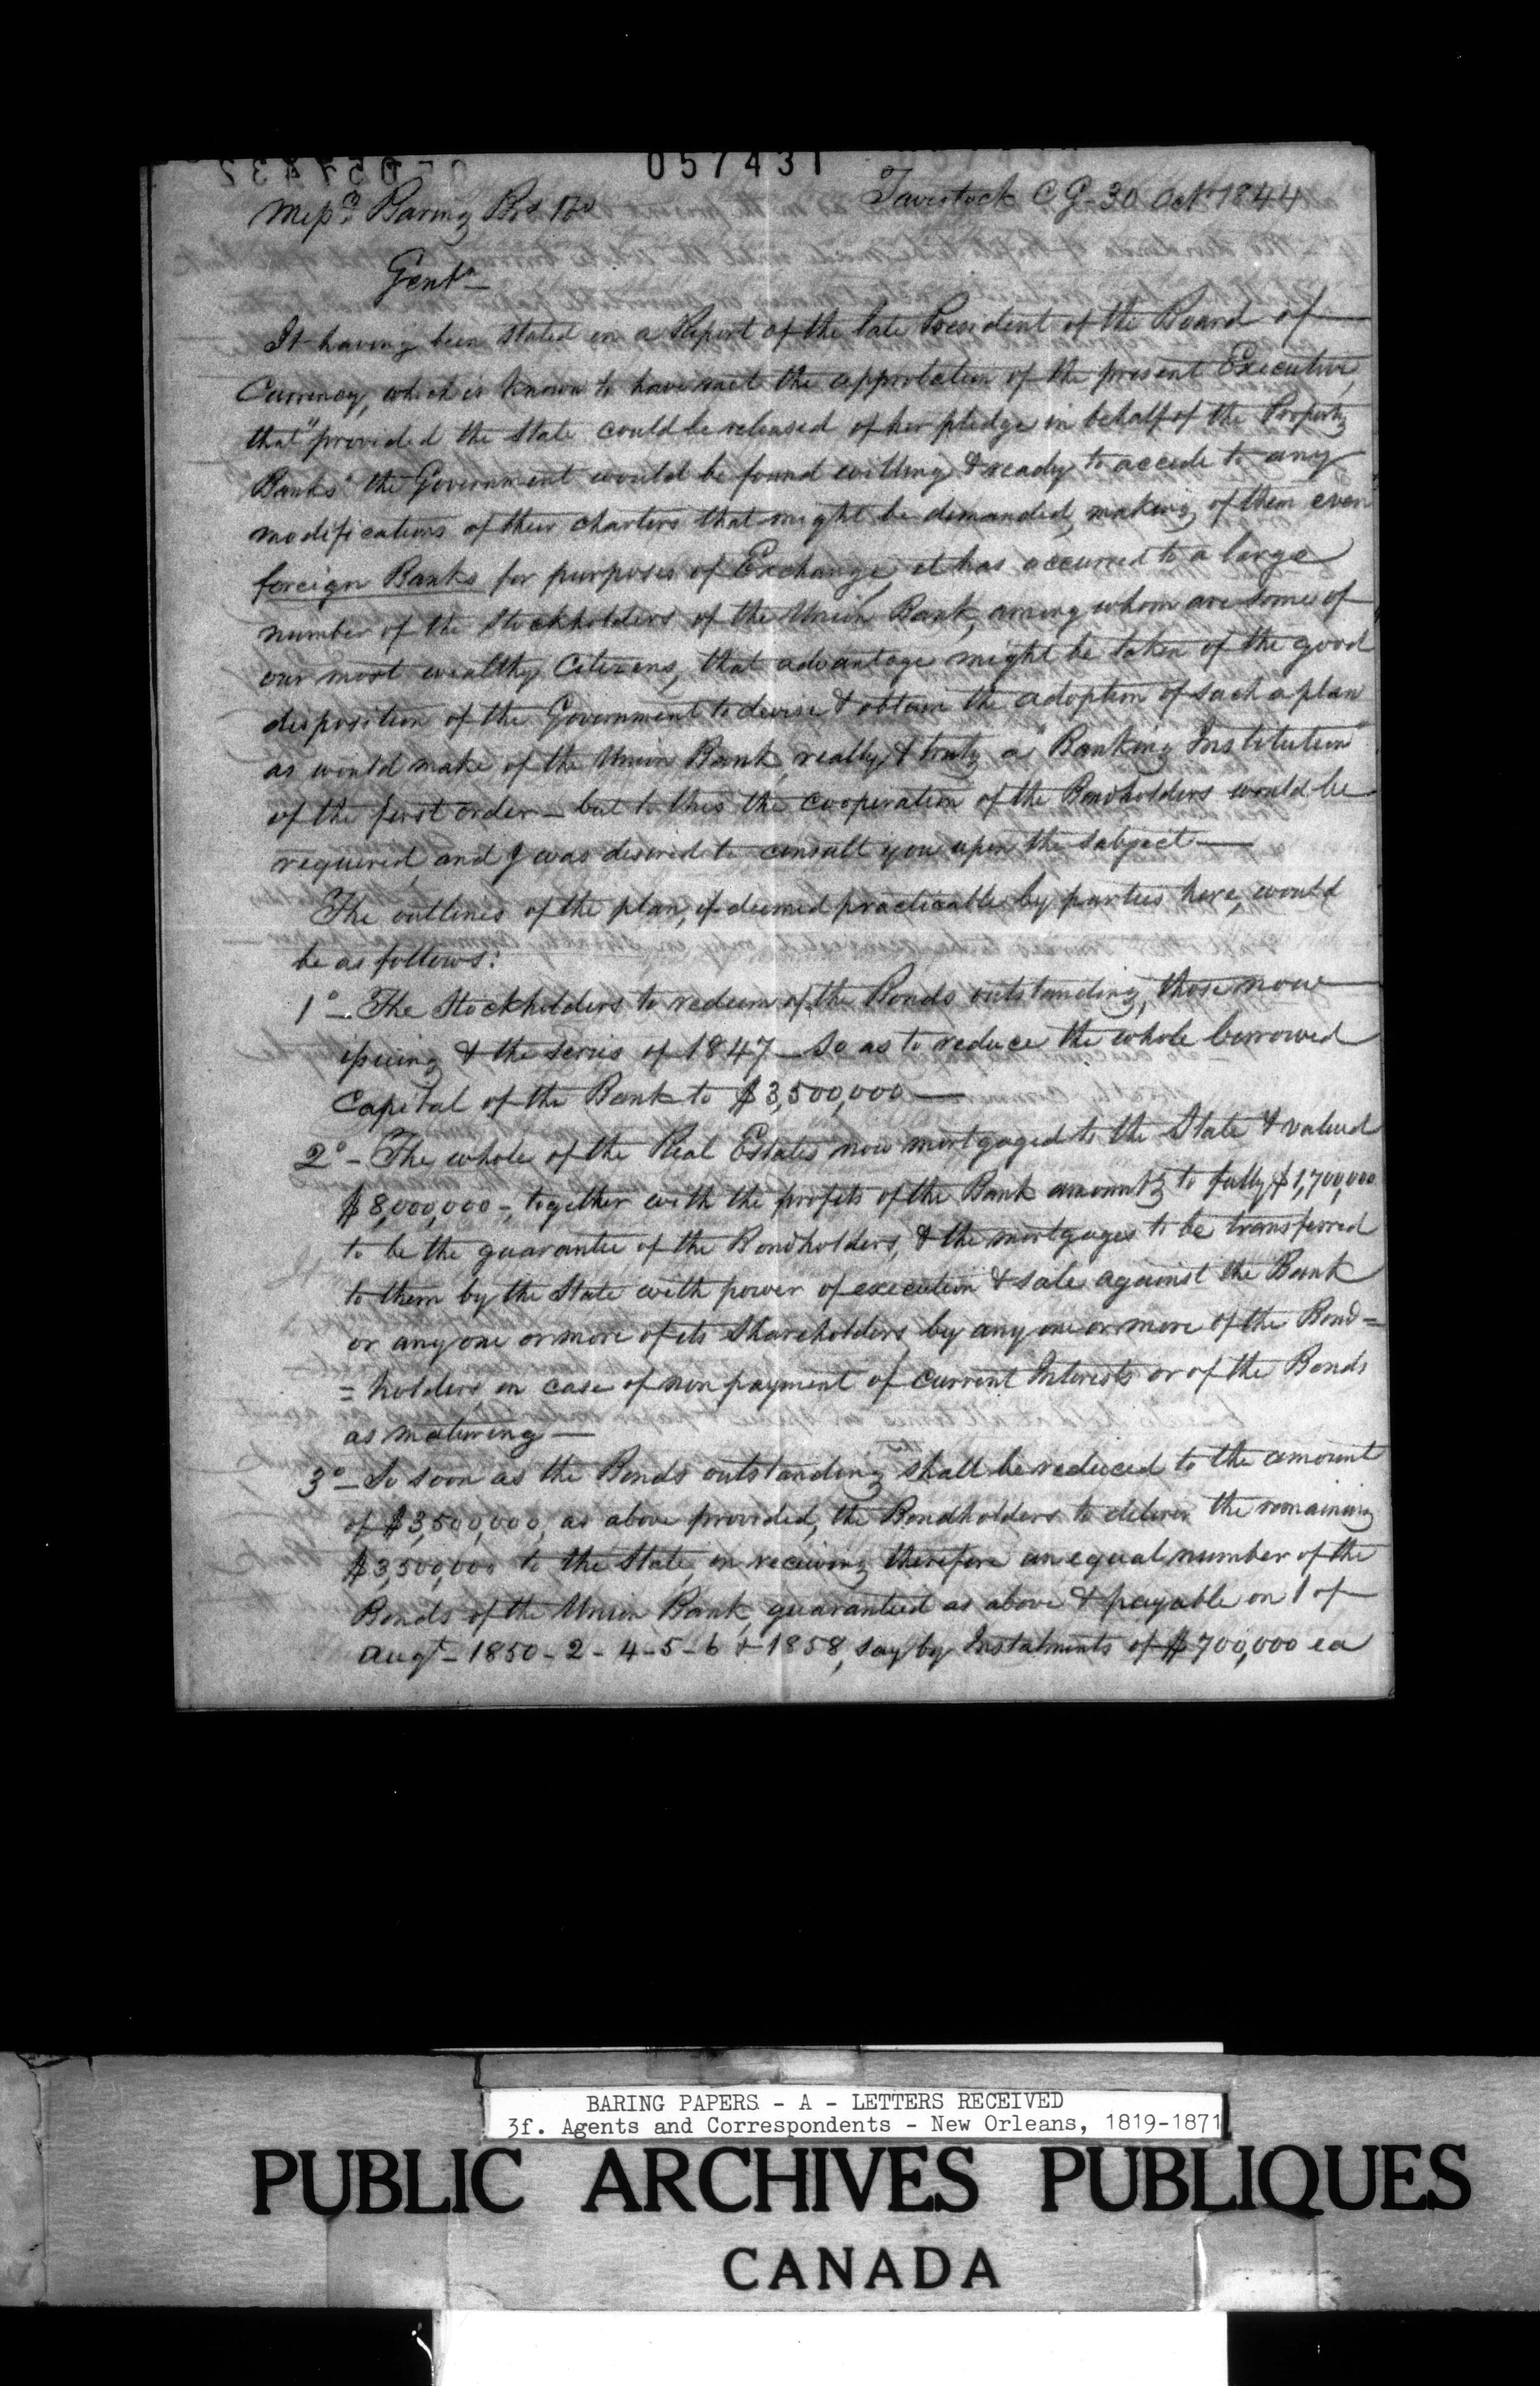 057431
Tavistock C G - 30 Oct 1844
Messrs Baring Brs & Co
Gentn
It having been stated in a Report of the late President of the Board of
Currency, which is known to have met the approbation of the present Executive,
that "provided the State could be released of her pledge in behalf of the Property
Banks" the Government would be found willing & ready to accede to any
modifications of their charters that might be demanded, making of them even
foreign Banks for purposes of Exchange, it has occurred to a large
number of the Stockholders of the Union Bank, among whom are some of
our most wealthy Citizens, that advantage might be taken of the good
disposition of the Government to devise & obtain the adoption of such a plan
as would make of the Union Bank, really & truly a "Banking Institution"
of the first order - but to this the cooperation of the Bondholders would be
required, and I was desired to consult you upon the subject -
The outlines of the plan, if deemed practicable by parties here, would
be as follows:
1° - The Stockholders to redeem of the Bonds outstanding, those now
issuing & the series of 1847 - So as to reduce the whole borrowed
Capital of the Bank to $3,500,000 -
2° - The whole of the Real Estates now mortgaged to the State & valued
$8,000,000 -, together with the profits of the Bank amountg to fully $1,700,000
to be the guarantee of the Bondholders, & the mortgages to be transferred
to them by the State with power of execution & sale against the Bank
or any one or more of its Shareholders, by any one or more of the Bond=
=holders, in case of non payment of current Interests or of the Bonds
as maturing -
3° - So soon as the Bonds outstanding shall be reduced to the amount
of $3,500,000, as above provided, the Bondholders to deliver the remaining
$3,500,000 to the State, on receiving therefore an equal number of the
Bonds of the Union Bank, guaranteed as above & payable on 1 of
Augt - 1850 - 2 - 4 - 5 - 6 & 1858, say by Instalments of $700,000 ea
BARING PAPERS - A - LETTERS RECEIVED
3f. Agents and Correspondents - New Orleans, 1819-1871
PUBLIC ARCHIVES PUBLIQUES
CANADA